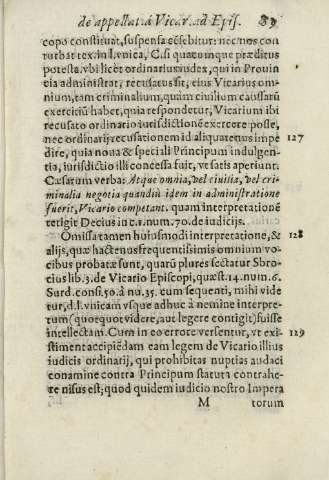 de appellat. á Vicar. ad Epis. 89
copo constituat, suspensa cēsebitur: nec nos con
turbat tex. in l. vnica, C. si quacumque præditus
potesta. vbi licèt ordinarius iudex, qui in Prouin
cia administrat, recusatus sit, eius Vicarius om-
nium, tam criminalium, quàm ciuilium caussarũ
exercitiũ habet, quia respondetur, Vicarium ibi
recusato ordinario iurisdictionẽ exercere posse,
nec ordinarij recusationem id aliquatenus impe 127
dire, quia noua & speciali Principum indulgen-
tia, iurisdictio illi concessa fuit, vt satis aperiunt.
Cæsarum verba: Atque omnia, vel ciuilia, vel cri-
minalia negotia quandiù idem in administratione
fuerit, Vicario competant. quam interpretationẽ
tetigit Decius in c. 1. num. 70. de iudicijs.
Omissa tamen huiusmodi interpretatione, & 128
alijs, quæ hactenus frequentissimis omnium vo-
cibus probatæ sunt, quarũ plures sectatur Sbro-
cius lib. 3. de Vicario Episcopi, quæst. 14. num. 6.
Surd. consi. 50. à nu. 35. cum sequenti, mihi vide
tur, d. l. vnicam vsque adhuc à nemine interpre-
tum (quotquot videre, aut legere contigit) fuisse
intellectam. Cum in eo errore versentur, vt exi- 129
stiment accipiẽdam eam legem de Vicario illius
iudicis ordinarij, qui prohibitas nuptias audaci
conamine contra Principum statuta contrahe-
re nisus est; quod quidem iudicio nostro Impera
M torum